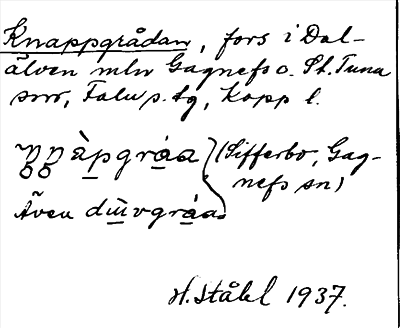 Knappgrådan, fors i Dal-
älven mln Gagnefs o. St. Tuna
snr, Falu s. tg, Kopp l.
àpgráa (Sifferbo, Gag-
nefs sn)
Även
H. Ståhl 1937.